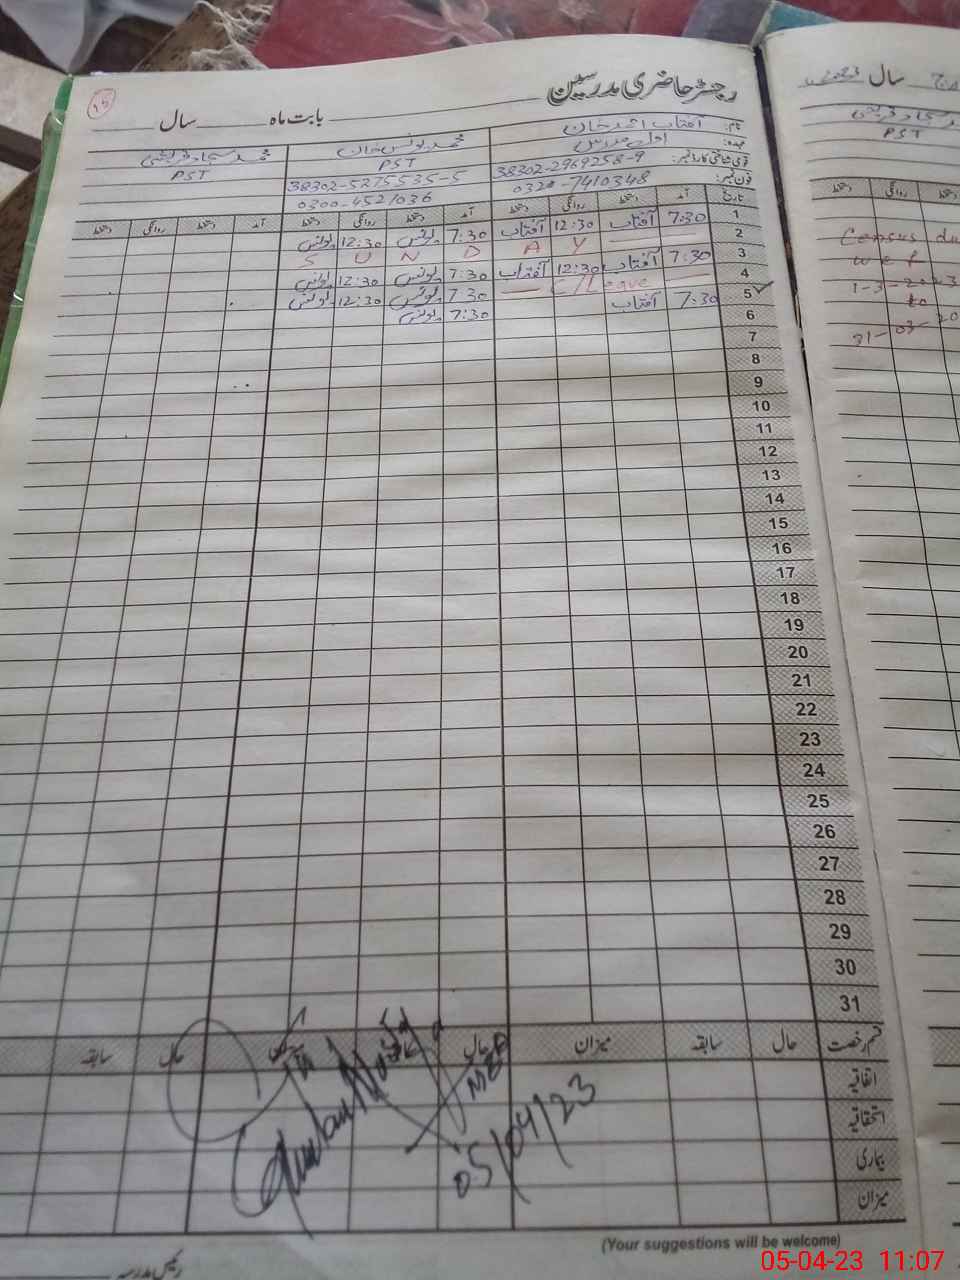 رجسٹر حاضری مدرسین
بابت ماہ ______ سال ______
نام: آفتاب احمد خان محمد یونس خان محمد سجاد قریشی
عہدہ: اول مدرس PST PST
قومی شناختی کارڈ نمبر: 38302-2969258-9 38302-5275535-5
فون نمبر: 0320-7410348 0300-4521036
تاریخ آمد دستخط روانگی دستخط آمد دستخط روانگی دستخط آمد دستخط روانگی دستخط
1 7:30 آفتاب 12:30 آفتاب 7:30 یونس 12:30 یونس
2 S U N D A Y
3 7:30 آفتاب 12:30 آفتاب 7:30 یونس 12:30 یونس
4 C/Leave 7:30 یونس 12:30 یونس
5 7:30 آفتاب 7:30 یونس
6
7
8
9
10
11
12
13
14
15
16
17
18
19
20
21
22
23
24
25
26
27
28
29
30
31
قسم رخصت حال سابقہ میزان حال حال سابقہ
اتفاقیہ
استحقاقیہ
بیماری
میزان
05/04/23
(Your suggestions will be welcome)
رئیس مدرسہ
سال 2023
PST
روانگی
Census
w e f
1-3-2023
to
31-03-20
05-04-23 11:07